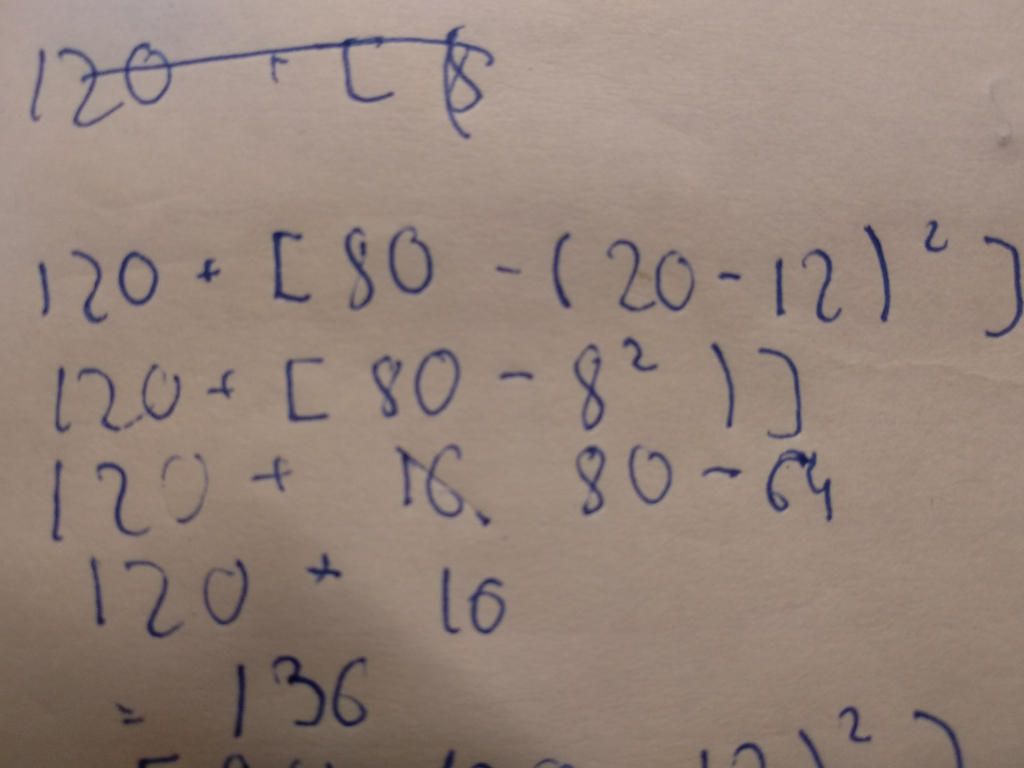 120 + [ (8
120 + [ 80 - ( 20 - 12 )² ]
120 + [ 80 - 8² ) ]
120 + 16 80 - 64
120 + 16
= 136
)² ]